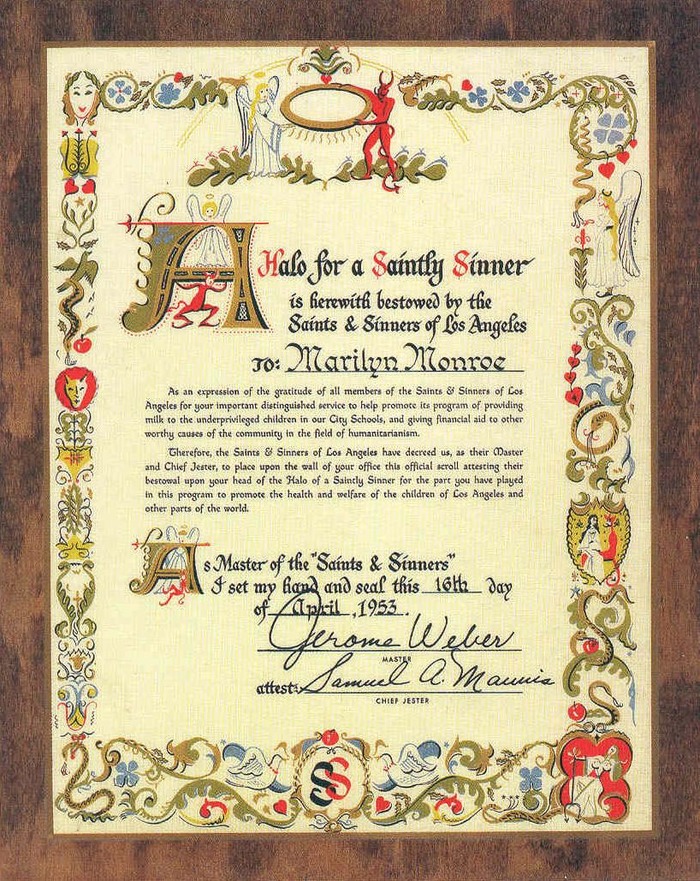 A Halo for a Saintly Sinner
is herewith bestowed by the
Saints & Sinners of Los Angeles
TO: Marilyn Monroe
As an expression of the gratitude of all members of the Saints & Sinners of Los
Angeles for your important distinguished service to help promote its program of providing
milk to the underprivileged children in our City Schools, and giving financial aid to other
worthy causes of the community in the field of humanitarianism.
Therefore, the Saints & Sinners of Los Angeles have decreed us, as their Master
and Chief Jester, to place upon the wall of your office this official scroll attesting their
bestowal upon your head of the Halo of a Saintly Sinner for the part you have played
in this program to promote the health and welfare of the children of Los Angeles and
other parts of the world.
As Master of the "Saints & Sinners"
I set my hand and seal this 16th day
of April, 1953.
Jerome Weber
MASTER
attest: Samuel A.
CHIEF JESTER
SS